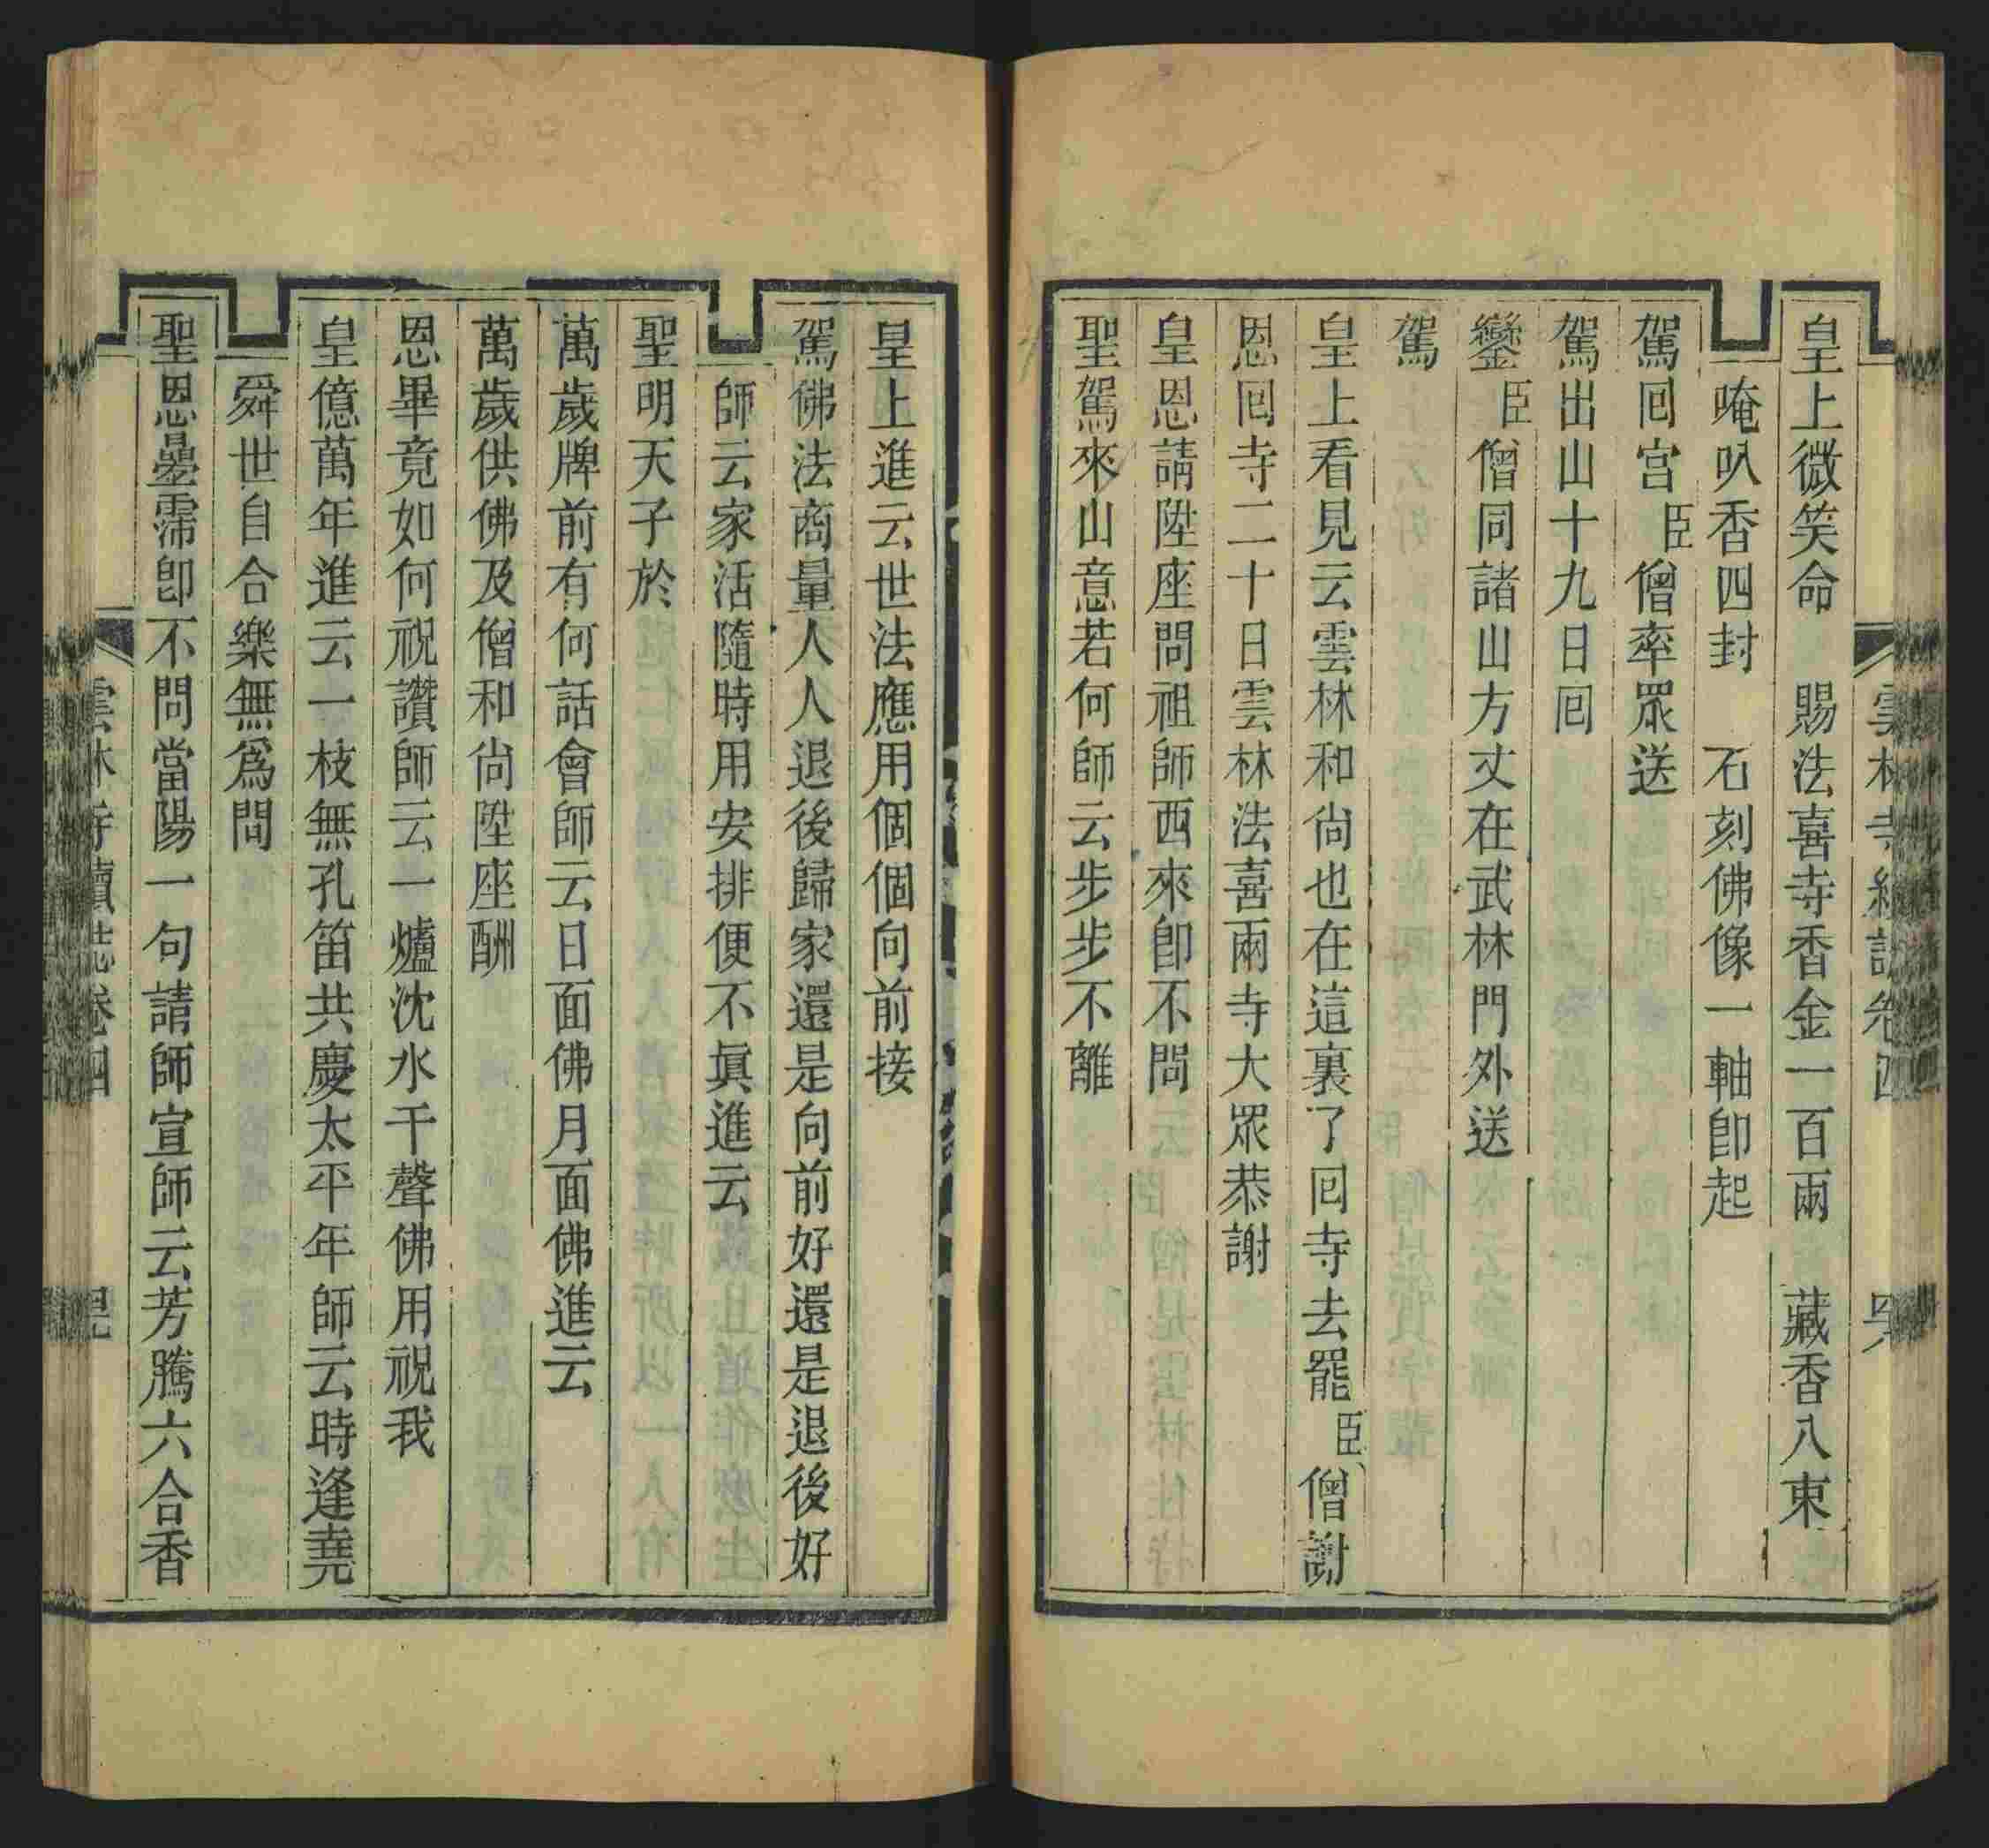 皇上微笑命　賜法喜寺香金一百兩　藏香八束
唵叭香四封　石刻佛像一軸卽起
駕回宮臣僧率眾送
駕出山十九日回
鑾臣僧同諸山方丈在武林門外送
駕
皇上看見云雲林和尚也在這裏了回寺去罷臣僧謝
恩回寺二十日雲林法喜兩寺大眾恭謝
皇恩請陞座問祖師西來卽不問
聖駕來山意若何師云步步不離
皇上進云世法應用個個向前接
駕佛法商量人人退後歸家還是向前好還是退後好
師云家活隨時用安排便不眞進云
聖明天子於
萬歲牌前有何話會師云日面佛月面佛進云
萬歲供佛及僧和尚陞座酬
恩畢竟如何祝讚師云一爐沈水千聲佛用祝我
皇億萬年進云一枝無孔笛共慶太平年師云時逢堯
舜世自合樂無爲問
聖恩曡霈卽不問當陽一句請師宣師云芳騰六合香
雲林寺續誌卷四